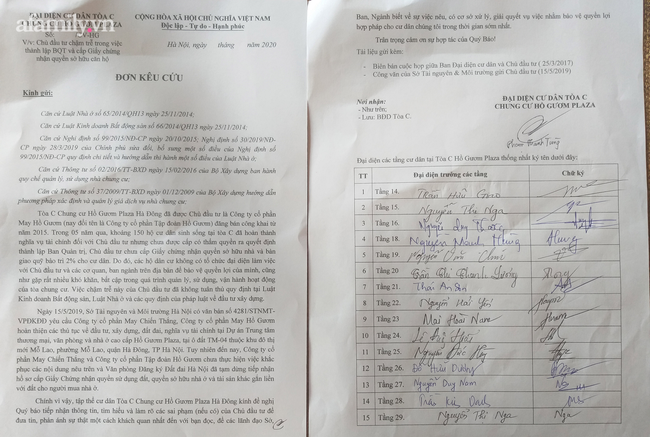 ĐẠI DIỆN CƯ DÂN TÒA C
CHUNG CƯ HỒ GƯƠM PLAZA
Số: /ĐV-HG
V/v: Chủ đầu tư chậm trễ trong việc
thành lập BQT và cấp Giấy chứng
nhận quyền sở hữu căn hộ
CỘNG HÒA XÃ HỘI CHỦ NGHĨA VIỆT NAM
Độc lập - Tự do - Hạnh phúc
Hà Nội, ngày tháng năm 2020
ĐƠN KÊU CỨU
Kính gửi:
Căn cứ Luật Nhà ở số 65/2014/QH13 ngày 25/11/2014;
Căn cứ Luật Kinh doanh Bất động sản số 66/2014/QH13 ngày 25/11/2014;
Căn cứ Nghị định số 99/2015/NĐ-CP ngày 20/10/2015; Nghị định số 30/2019/NĐ-
CP ngày 28/3/2019 của Chính phủ sửa đổi, bổ sung một số điều của Nghị định số
99/2015/NĐ-CP quy định chi tiết và hướng dẫn thi hành một số điều của Luật Nhà ở;
Căn cứ Thông tư số 02/2016/TT-BXD ngày 15/02/2016 của Bộ Xây dựng ban hành
quy chế quản lý, sử dụng nhà chung cư;
Căn cứ Thông tư số 37/2009/TT-BXD ngày 01/12/2009 của Bộ Xây dựng hướng dẫn
phương pháp xác định và quản lý giá dịch vụ nhà chung cư;
Tòa C Chung cư Hồ Gươm Plaza Hà Đông đã được Chủ đầu tư là Công ty cổ phần
May Hồ Gươm (nay đổi tên là Công ty cổ phần Tập đoàn Hồ Gươm) đăng bán công khai từ
năm 2015. Trong 05 năm qua, khoảng 150 hộ cư dân sinh sống tại tòa C đã hoàn thành
nghĩa vụ tài chính đối với Chủ đầu tư nhưng chưa được cấp có thẩm phẩm ra quyết định
thành lập Ban Quản trị, Chủ đầu tư chưa cấp Giấy chứng nhận quyền sở hữu nhà ở và bàn
giao quỹ bảo trì 2% cho cư dân. Do đó, các hộ dân cư không có tổ chức đại diện làm việc
với Chủ đầu tư và các cơ quan, ban ngành trên địa bàn để bảo vệ quyền lợi của mình, cũng
như gặp rất nhiều khó khăn, bất cập trong quá trình quản lý, sử dụng, vận hành hoạt động
của tòa chung cư. Việc chậm trễ này của Chủ đầu tư đã không tuân thủ quy định tại Luật
Kinh doanh Bất động sản, Luật Nhà ở và các quy định của pháp luật về đầu tư xây dựng.
Ngày 15/5/2019, Sở Tài nguyên và Môi trường Hà Nội có văn bản số 4281/STNMT-
VPĐKĐĐ yêu cầu Công ty cổ phần May Chiến Thắng, Công ty cổ phần May Hồ Gươm
hoàn thiện các thủ tục về đầu tư, xây dựng, đất đai, nghĩa vụ tài chính tại Dự án Trung tâm
thương mại, văn phòng và nhà ở cao cấp Hồ Gươm Plaza, tại ô đất TM-04 thuộc khu đô thị
mới Mỗ Lao, phường Mỗ Lao, quận Hà Đông, TP Hà Nội. Tuy nhiên đến nay, Công ty cổ
phần May Chiến Thắng và Công ty cổ phần Tập đoàn Hồ Gươm chưa thực hiện việc khắc
phục các nội dung nêu trên và Văn phòng Đăng ký Đất đai Hà Nội đã tạm dừng tiếp nhận
hồ sơ cấp Giấy Chứng nhận quyền sử dụng đất, quyền sở hữu nhà ở và tài sản khác gắn liền
với đất cho người mua nhà ở.
Chính vì vậy, tập thể cư dân Tòa C Chung cư Hồ Gươm Plaza Hà Đông kính đề nghị
Quý báo tiếp nhận thông tin, tìm hiểu và làm rõ các sai phạm (nếu có) của Chủ đầu tư để
đưa tin, phản ánh sự thật một cách khách quan nhất đến với bạn đọc, để các lãnh đạo Sở,
Ban, Ngành biết về sự việc nêu, có cơ sở xử lý, giải quyết vụ việc nhằm bảo vệ quyền lợi
hợp pháp cho cư dân chúng tôi trong thời gian sớm nhất.
Trân trọng cảm ơn sự hợp tác của Quý Báo!
Tài liệu gửi kèm:
- Biên bản cuộc họp giữa Ban Đại diện cư dân và Chủ đầu tư ( 25/3/2017)
- Công văn của Sở Tài nguyên & Môi trường gửi Chủ đầu tư (15/5/2019)
Nơi nhận:
- Như trên;
- Lưu: BĐD Tòa C.
ĐẠI DIỆN CƯ DÂN TÒA C
CHUNG CƯ HỒ GƯƠM PLAZA
Phạm Thanh Tùng
Đại diện các tầng cư dân tại Tòa C Hồ Gươm Plaza thống nhất ký tên dưới đây;
TT Đại diện trưởng các tầng Chữ ký
1 Tầng 14. Trần Hữu
2 Tầng 15. Nguyễn Thị Nga
3 Tầng 16. Nguyễn Duy
4 Tầng 18. Nguyễn Mạnh Hùng Hung
5 Tầng 19. Nguyễn Văn
6 Tầng 20 Trần Thị Thanh Hương
7 Tầng 21. Thái An Sơn
8 Tầng 22. Nguyễn Hải Yến
9 Tầng 23. Mai Hoài Nam
10 Tầng 24. Lê
11 Tầng 25. Nguyễn Đức Huy
12 Tầng 26. Đỗ Hữu Dương
13 Tầng 27. Nguyễn Duy Nam
14 Tầng 28. Trần
15 Tầng 29. Nguyễn Thị Nga Nga